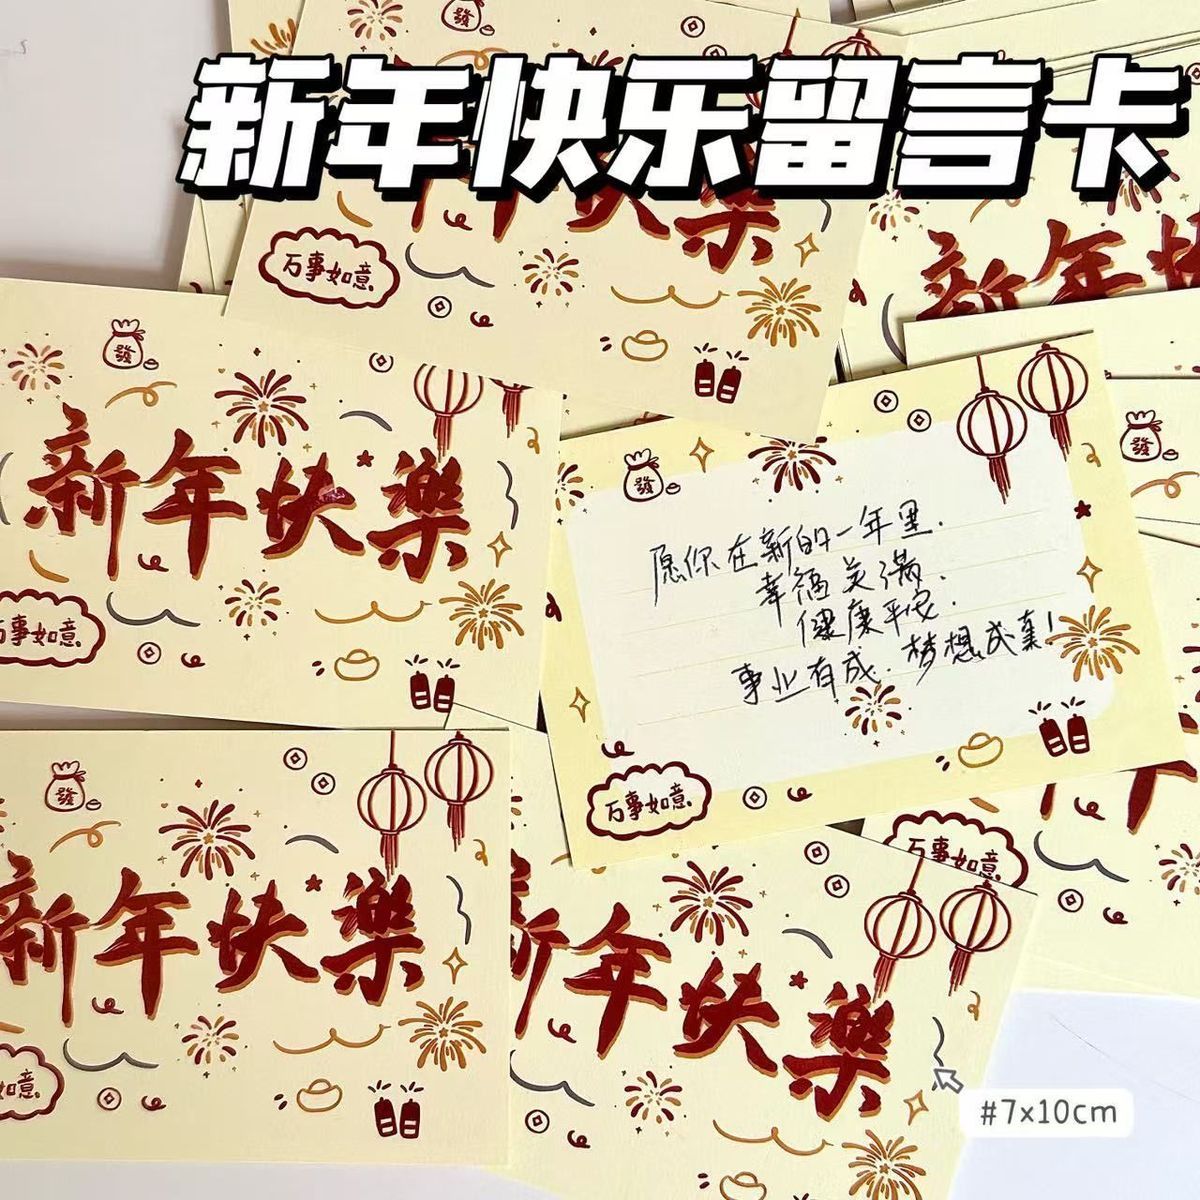 新年快乐留言卡
發
年快樂
万事如意
新年快
發
新年快樂
万事如意
發
發
愿你在新的一年里.
幸福美满.
健康平安.
事业有成.梦想成真!
万事如意
万事如意
發
新年快樂
如意
新年快樂
#7x10cm